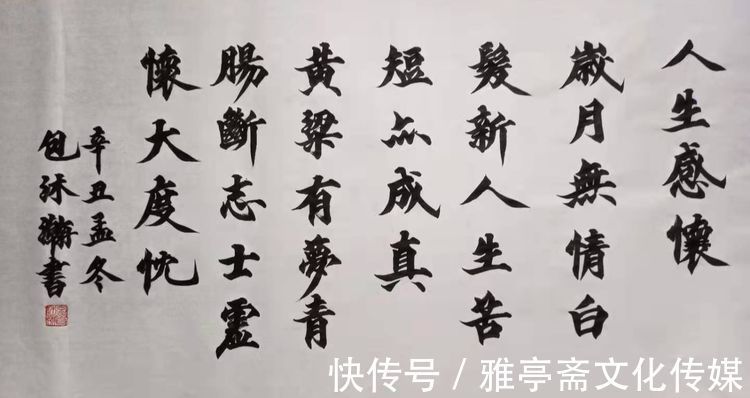 人生感懷
嵗月無情白
髮新人生苦
短点成真
黄粱有夢青
腸斷志士虛
懷大度忱
辛丑孟冬
包沐瀚書
快传号 / 雅亭斋文化传媒